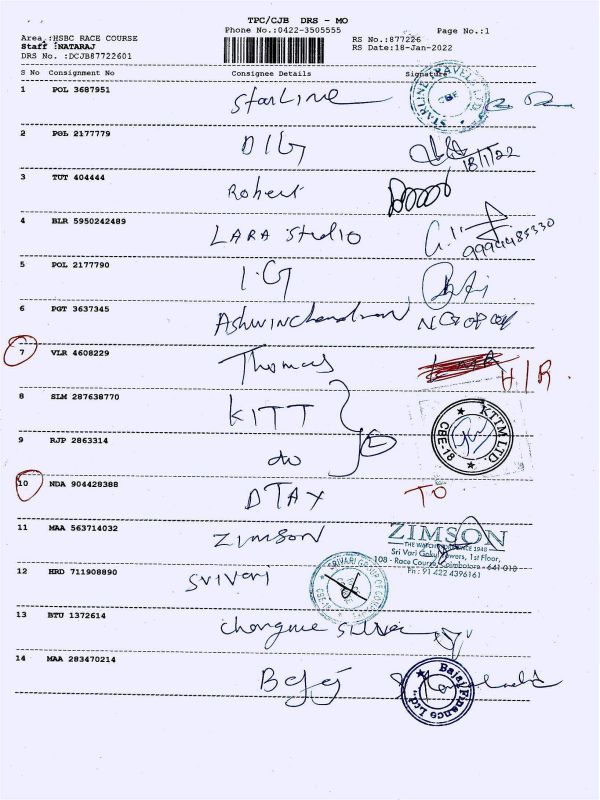 TPC/CJB DRS - MO
Phone No.:0422-3505555
Page No.:1
Area :HSBC RACE COURSE
RS No.:877226
Staff :NATARAJ
RS Date:18-Jan-2022
DRS No. :DCJB87722601
S No Consignment No Consignee Details Signature
1 POL 3687951 Starline
STARLINE TRAVEL
CBE
2 PGL 2177779 DIG 18/1/22
3 TUT 404444 Robert
4 BLR 5950242489 LARA Studio 9994485330
5 POL 2177790 I.G
6 PGT 3637345 Ashwinchandran
7 VLR 4608229 Thomas H/R.
8 SLM 287638770 KITT
KTTM LTD.
CBE-18
9 RJP 2863314 do
10 NDA 904428388 DTAX TO
11 MAA 563714032 ZIMSON
ZIMSON
Sri Vari Gokul Towers, 1st Floor,
108 - Race Course, Coimbatore - 641 018
Ph : 91 422 4396161
12 HRD 711908890 Srivari
13 BTU 1372614
14 MAA 283470214
Bajaj Finance Ltd